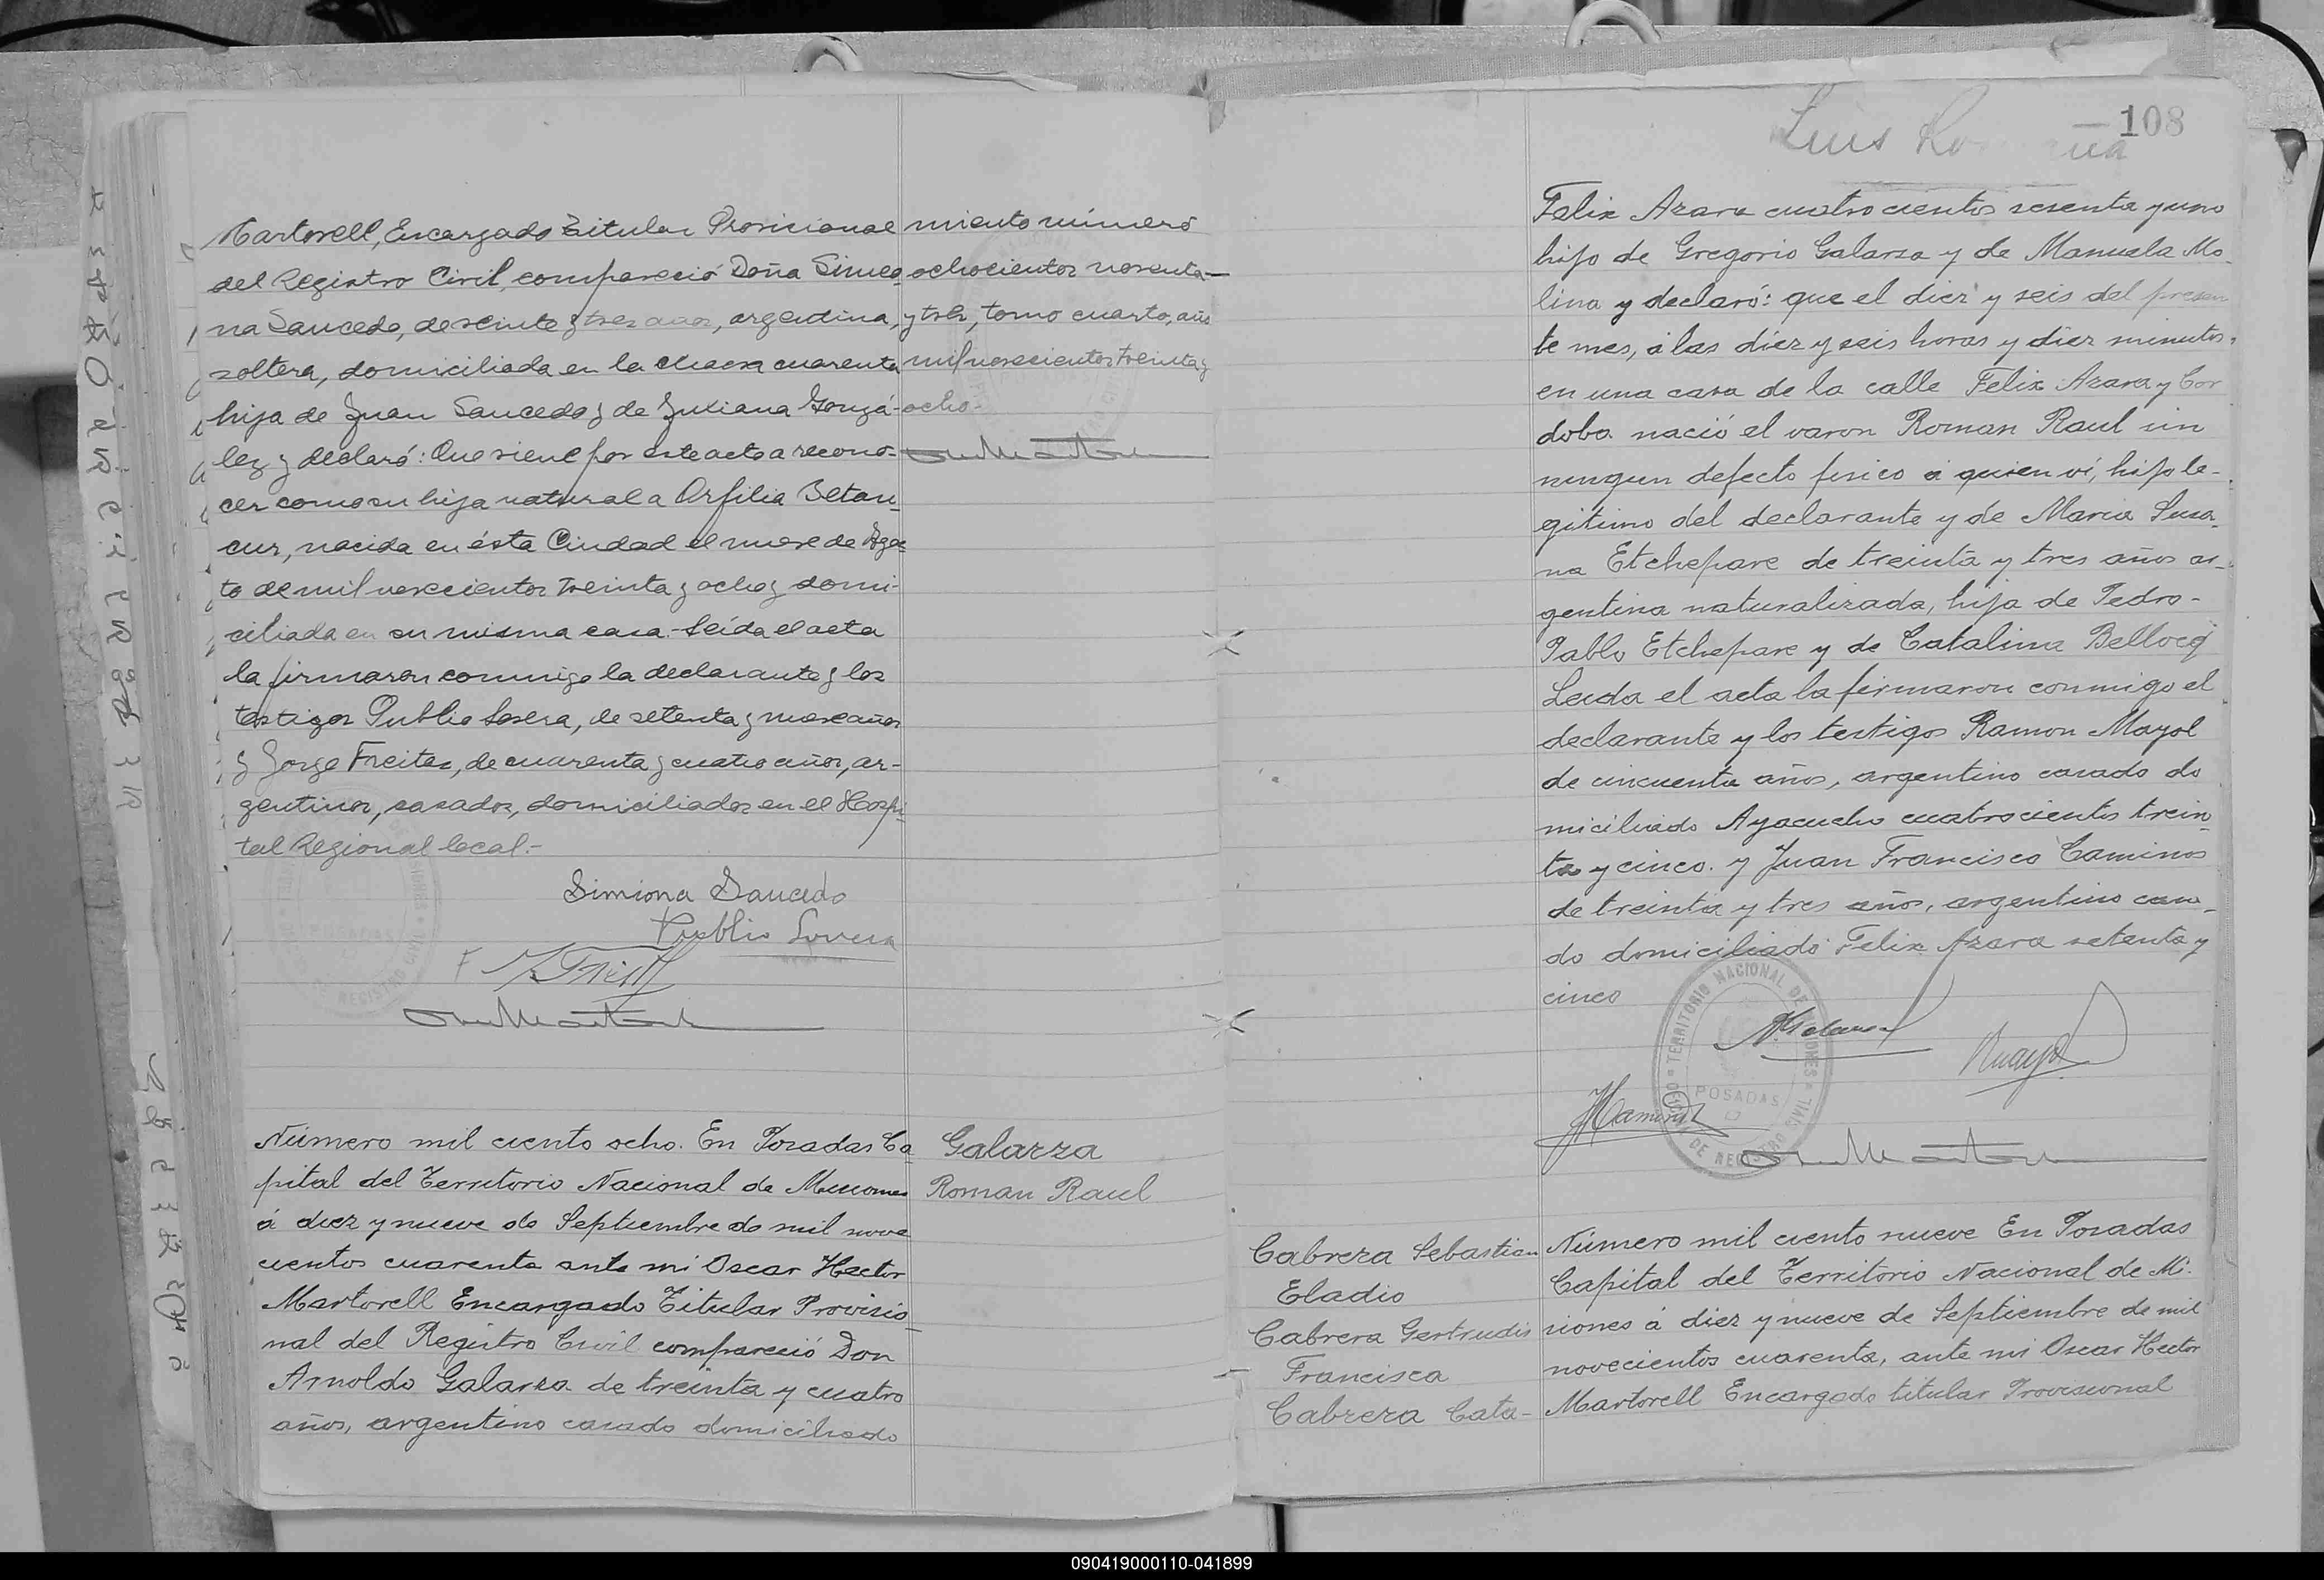 Martorell, Encargado Titular Provisional
del Registro Civil, compareció Doña Simeo-
na Saucedo, de veinte y tres años, argentina,
soltera, domiciliada en la chacra cuarenta
hija de Juan Saucedo y de Juliana Gonzá-
lez y declaró: Que viene por este acto a recono-
cer como su hija natural a Orfilia Betan-
cur, nacida en ésta Ciudad el nueve de Agos-
to de mil novecientos treinta y ocho y domi-
ciliada en su misma casa.- Leída el acta
la firmaron conmigo la declarante y los
testigos Publio Lovera, de setenta y nueve años
y Jorge Freitas, de cuarenta y cuatro años, ar-
gentinos, casados, domiciliados en el Hospi-
tal Regional local.-
Simiona Saucedo
Publio Lovera
miento número
ochocientos noventa-
y tres, tomo cuarto, año
mil novecientos treinta y
ocho.-
Número mil ciento ocho. En Posadas Ca
pital del Territorio Nacional de Misiones
á diez y nueve de Septiembre de mil nove
cientos cuarenta ante mi Oscar Hector
Martorell Encargado Titular Provisio-
nal del Registro Civil compareció Don
Arnoldo Galarza de treinta y cuatro
años, argentino casado domiciliado
Galarza
Roman Raul
108
Luis
Felix Azara cuatrocientos sesenta y uno
hijo de Gregorio Galarza y de Manuela Mo-
lina y declaró: que el diez y seis del presen
te mes, á las diez y seis horas y diez minutos,
en una casa de la calle Felix Azara y Cor
doba nació el varon Roman Raul sin
ningun defecto fisico á quien ví, hijo le-
gitimo del declarante y de Maria Susa-
na Etchepare de treinta y tres años ar-
gentina naturalizada, hija de Pedro-
Pablo Etchepare y de Catalina Bellocq
Leida el acta la firmaron conmigo el
declarante y los testigos Ramon Mayol
de cincuenta años, argentino casado do
miciliado Ayacucho cuatrocientos trein
ta y cinco. y Juan Francisco Caminos
de treinta y tres años, argentino casa-
do domiciliado Felix Azara setenta y
cinco
TERRITORIO NACIONAL DE MISIONES
POSADAS
DE REGISTRO CIVIL
Cabrera Sebastian
Eladio
Cabrera Gertrudis
Francisca
Cabrera Cata-
Número mil ciento nueve En Posadas
Capital del Territorio Nacional de Mi-
siones á diez y nueve de Septiembre de mil
novecientos cuarenta, ante mi Oscar Hector
Martorell Encargado titular Provisional
090419000110-041899